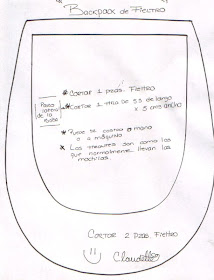 BACKPACK DE FIELTRO
* Cortar 2 pzas. Fieltro
Para
cierre
de la
base
* Cortar 1 tira de 55 de largo
x 5 cm ancho
* Puede ser cosido a mano
o a máquina
* Las tirantes son como las
que normalmente llevan las
mochilas.
Cortar 2 pzas. Fieltro
Claudette